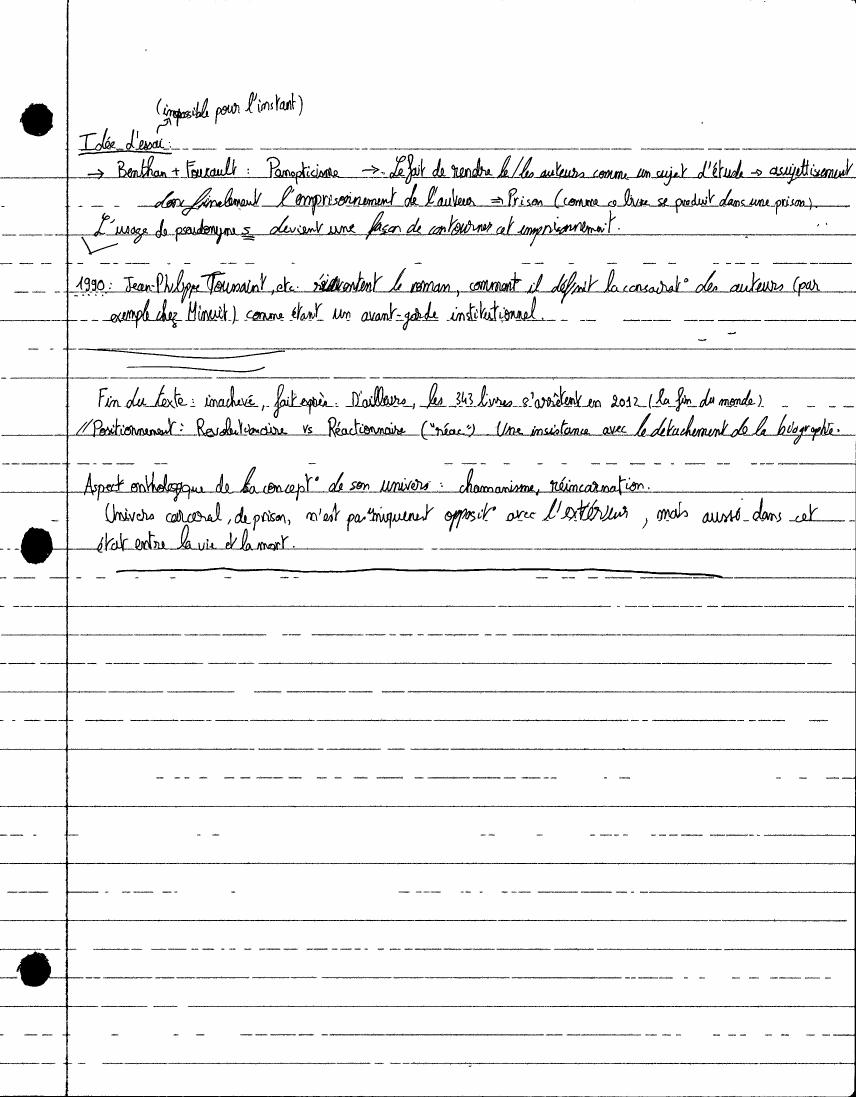 (impossible pour l'instant)
Idée d'essai:
→ Benthan + Foucault : Panopticisme → Le fait de rendre le/les auteurs comme un sujet d'étude → assujettissement
donc finalement l'emprisonnement de l'auteur ⇒ Prison (comme ce livre se produit dans une prison).
L'usage de pseudonymes devient une façon de contourner cet emprisonnement.
1990: Jean-Philippe Toussaint, etc. réinventent le roman, comment il définit la consécrat° des auteurs (par
exemple chez Minuit) comme étant un avant-garde institutionnel.
Fin du texte : inachevé, fait exprès. D'ailleurs, les 343 livres s'arrêtent en 2012 (la fin du monde)
// Positionnement : Révolutionnaire vs Réactionnaire ("réac") Une insistance avec le détachement de la biographie.
Aspect onthologique de la concept° de son univers : chamanisme, réincarnation.
Univers carceral, de prison, n'est pas uniquement opposit° avec l'extérieur, mais aussi dans cet
état entre la vie et la mort.